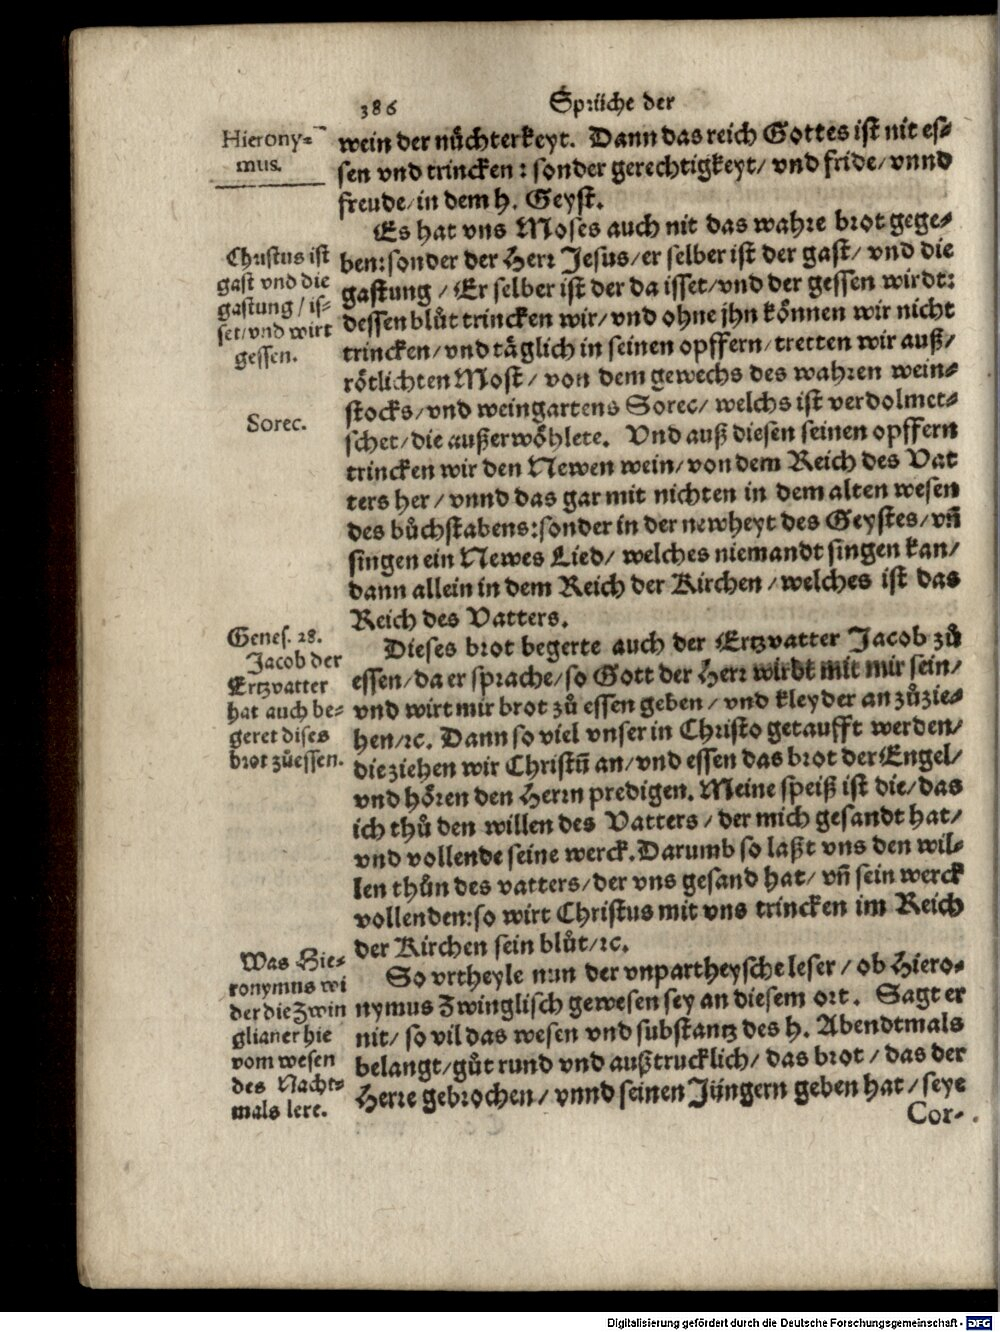 386
Sprüche der
Hierony-
mus.
wein der nüchterkeyt. Dann das reich Gottes ist nit es-
sen vnd trincken: sonder gerechtigkeyt/ vnd fride/ vnnd
freude/ in dem h. Geyst.
Es hat vns Moses auch nit das wahre brot gege-
Christus ist
gast vnd die
gastung/ is-
set/ vnd wirt
gessen.
ben: sonder der Herr Jesus/ er selber ist der gast/ vnd die
gastung/ Er selber ist der da isset/ vnd der gessen wirdt:
dessen blůt trincken wir/ vnd ohne jhn können wir nicht
trincken/ vnd täglich in seinen opffern/ tretten wir auß/
rötlichten Most/ von dem gewechs des wahren wein-
Sorec.
stocks/ vnd weingartens Sorec/ welchs ist verdolmet-
schet/ die außerwöhlete. Vnd auß diesen seinen opffern
trincken wir den Newen wein/ von dem Reich des Vat
ters her/ vnnd das gar mit nichten in dem alten wesen
des bůchstabens: sonder in der newheyt des Geystes/ vñ
singen ein Newes Lied/ welches niemandt singen kan/
dann allein in dem Reich der Kirchen/ welches ist das
Reich des Vatters.
Genes. 28.
Jacob der
Ertzvatter
hat auch be-
geret dises
brot zůessen.
Dieses brot begerte auch der Ertzvatter Jacob zů
essen/ da er sprache/ so Gott der Herr wirdt mit mir sein/
vnd wirt mir brot zů essen geben/ vnd kleyder an zůzie-
hen/ ꝛc. Dann so viel vnser in Christo getaufft werden/
die ziehen wir Christũ an/ vnd essen das brot der Engel/
vnd hören den Herrn predigen. Meine speiß ist die/ das
ich thů den willen des Vatters/ der mich gesandt hat/
vnd vollende seine werck. Darumb so laßt vns den wil-
len thůn des vatters/ der vns gesand hat/ vñ sein werck
vollenden: so wirt Christus mit vns trincken im Reich
der Kirchen sein blůt/ ꝛc.
Was Hie-
ronymus wi
der die Zwin
glianer hie
vom wesen
des Nacht-
mals lere.
So vrtheyle nun der vnpartheysche leser/ ob Hiero-
nymus Zwinglisch gewesen sey an diesem ort. Sagt er
nit/ so vil das wesen vnd substantz des h. Abendtmals
belangt/ gůt rund vnd außtrucklich/ das brot/ das der
Herre gebrochen/ vnnd seinen Jüngern geben hat/ seye
Cor-
Digitalisierung gefördert durch die Deutsche Forschungsgemeinschaft - DFG